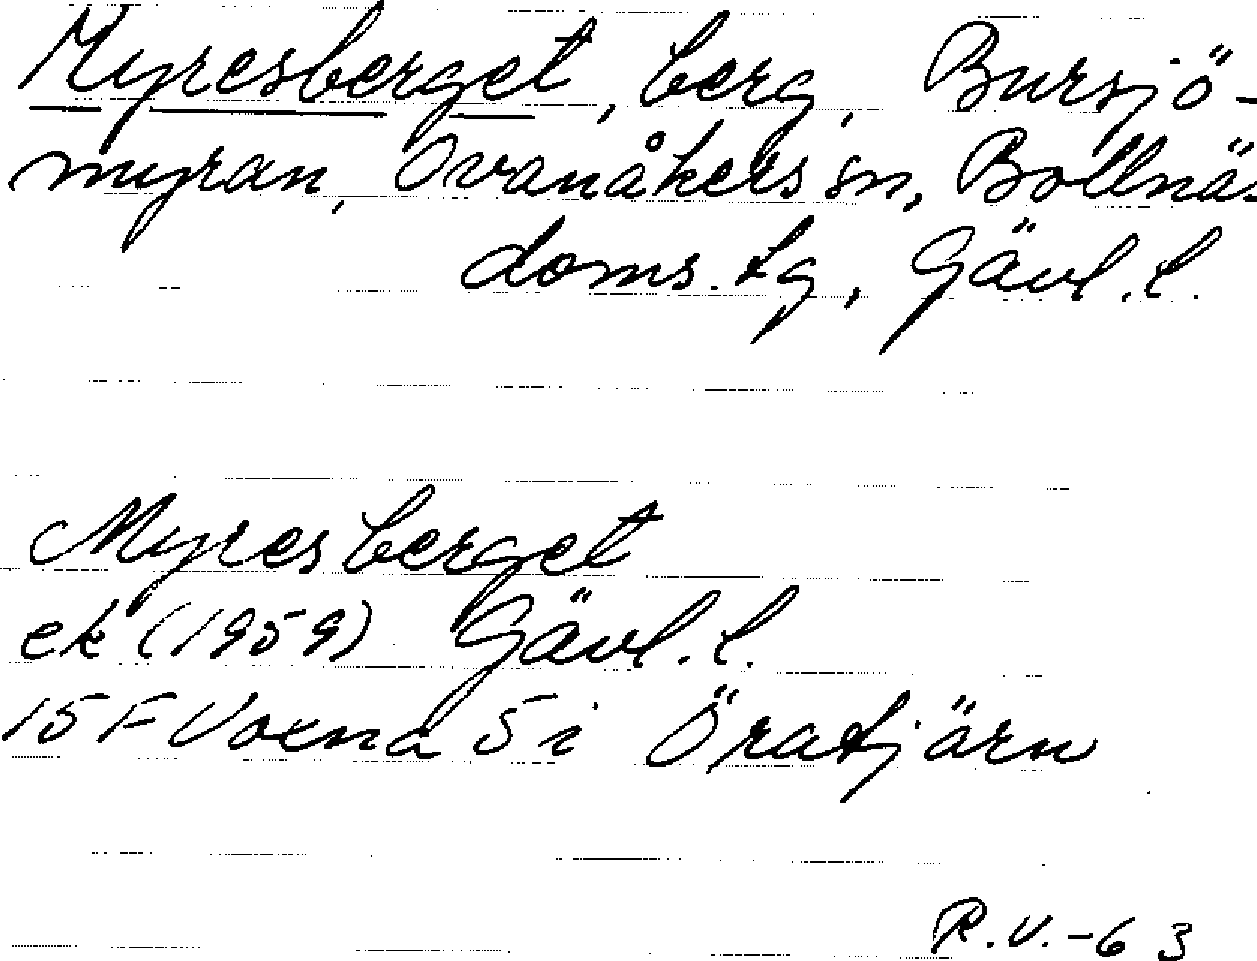 Myresberget, berg, Bursjö-
myran, Ovanåkers sn, Bollnäs
doms. tg, Gävl. l.
Myresberget
ek (1959) Gävl. l.
15 F Voxna 5 i Öratjärn
R.V.-63